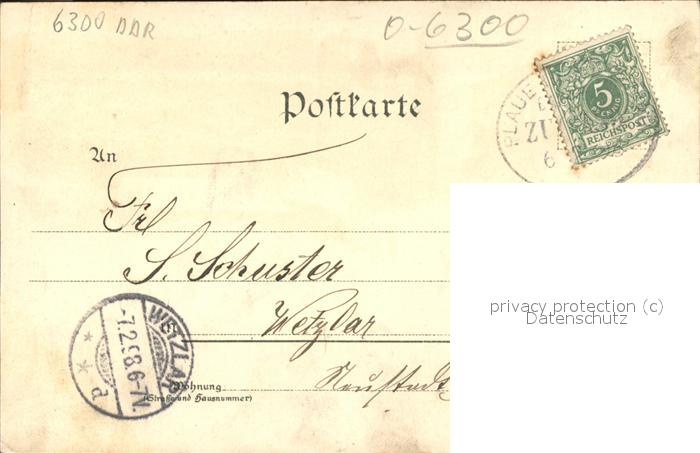 6300 DDR
0-6300
Postkarte
PLAUE
ZU
6
5
REICHSPOST
An
Frl
S. Schuster
Wetzlar
Neustadt
WETZLAR
-7.2.98.6-7N.
* * a
Wohnung
(Straße und Hausnummer)
privacy protection (c)
Datenschutz